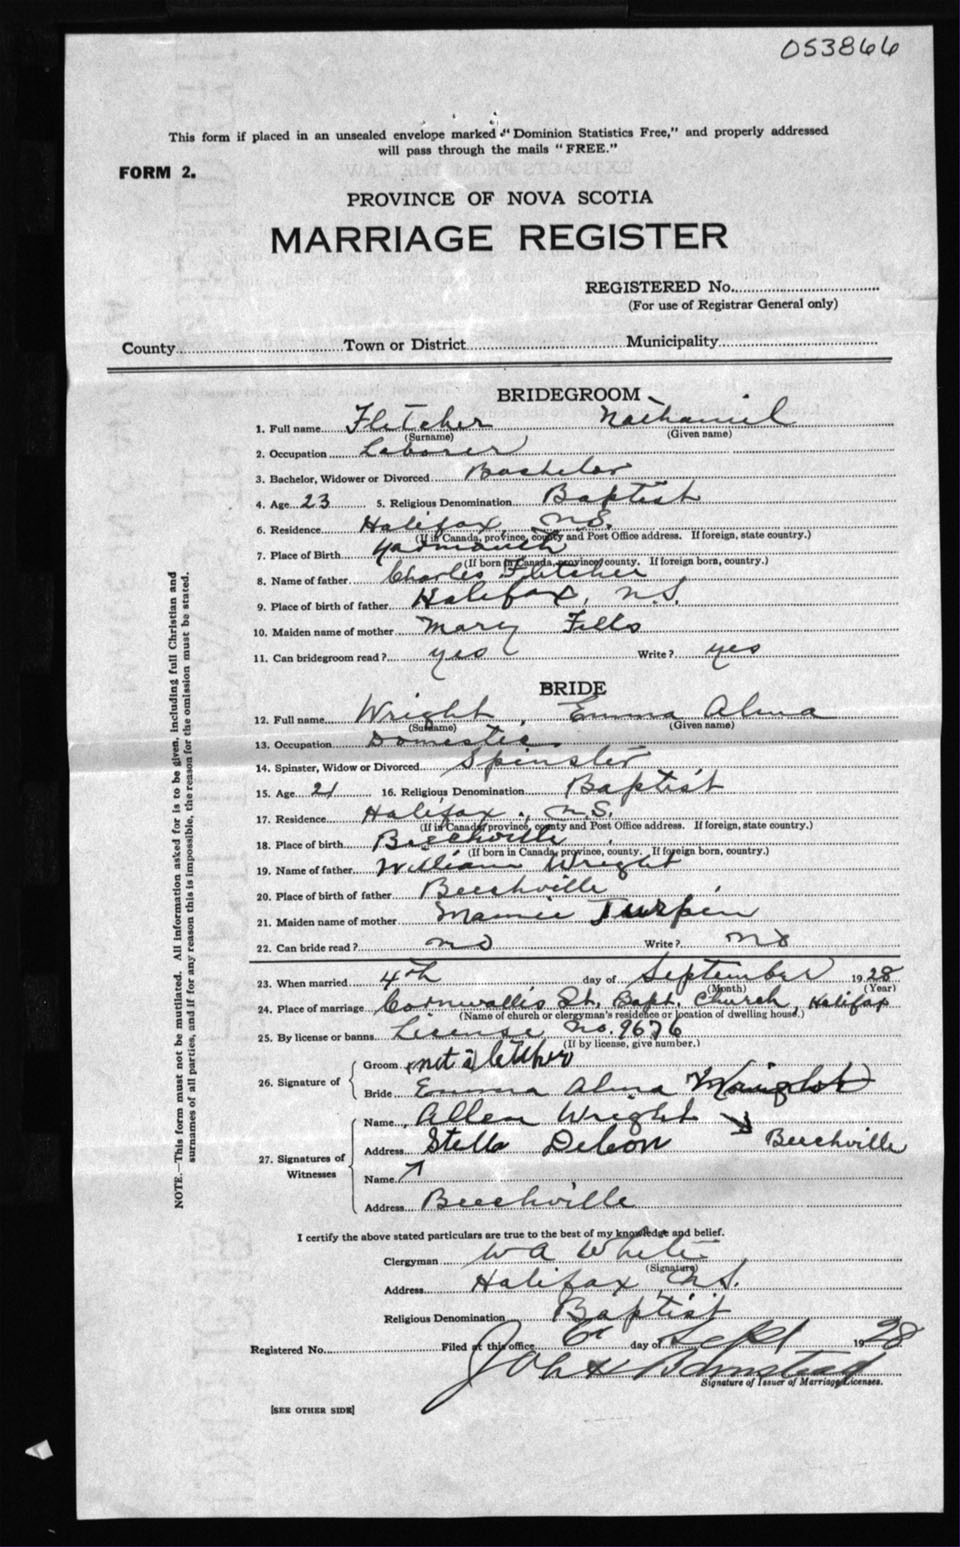 053866
This form if placed in an unsealed envelope marked "Dominion Statistics Free," and properly addressed
will pass through the mails "FREE."
FORM 2.
PROVINCE OF NOVA SCOTIA
MARRIAGE REGISTER
REGISTERED No.
(For use of Registrar General only)
County Town or District Municipality
BRIDEGROOM
1. Full name Fletcher Nathaniel
(Surname) (Given name)
2. Occupation Laborer
3. Bachelor, Widower or Divorced Bachelor
4. Age 23 5. Religious Denomination Baptist
6. Residence Halifax, N.S.
(If in Canada, province, county and Post Office address. If foreign, state country.)
7. Place of Birth Yarmouth
(If born in Canada, province, county. If foreign born, country.)
8. Name of father Charles Fletcher
9. Place of birth of father Halifax, N.S.
10. Maiden name of mother Mary Fells
11. Can bridegroom read? yes Write? yes
BRIDE
12. Full name Wright, Emma Alma
(Surname) (Given name)
13. Occupation Domestic
14. Spinster, Widow or Divorced Spinster
15. Age 21 16. Religious Denomination Baptist
17. Residence Halifax, N.S.
(If in Canada, province, county and Post Office address. If foreign, state country.)
18. Place of birth Beechville
(If born in Canada, province, county. If foreign born, country.)
19. Name of father William Wright
20. Place of birth of father Beechville
21. Maiden name of mother Mamie Turpin
22. Can bride read? no Write? no
23. When married 4th day of September 1928
(Month) (Year)
24. Place of marriage Cornwallis St. Bapt. Church, Halifax
(Name of church or clergyman's residence or location of dwelling house.)
25. By license or banns License No. 9676
(If by license, give number.)
26. Signature of
Groom
Bride Emma Alma Wright
27. Signatures of Witnesses
Name Allen Wright
Address Stella Beechville
Name
Address Beechville
I certify the above stated particulars are true to the best of my knowledge and belief.
Clergyman W A White
(Signature)
Address Halifax N.S.
Religious Denomination Baptist
Registered No. Filed at this office 6 day of Sept 1928
Signature of Issuer of Marriage Licenses.
[SEE OTHER SIDE]
NOTE.—This form must not be mutilated. All information asked for is to be given, including full Christian and
surnames of all parties, and if for any reason this is impossible, the reason for the omission must be stated.